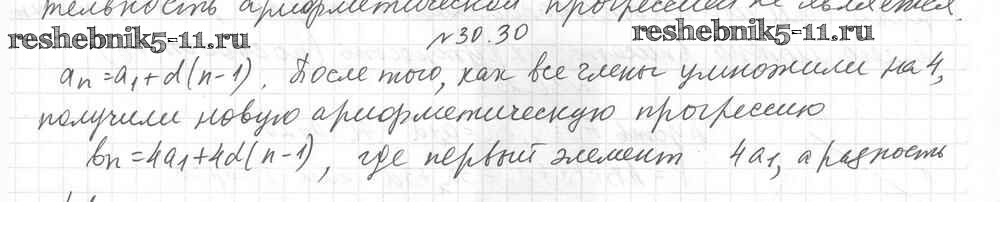 тельность арифметической прогрессией не является.
reshebnik5-11.ru №30.30 reshebnik5-11.ru
aₙ=a₁+d(n-1). После того, как все члены умножили на 4,
получили новую арифметическую прогрессию
bₙ=4a₁+4d(n-1), где первый элемент 4a₁, а разность